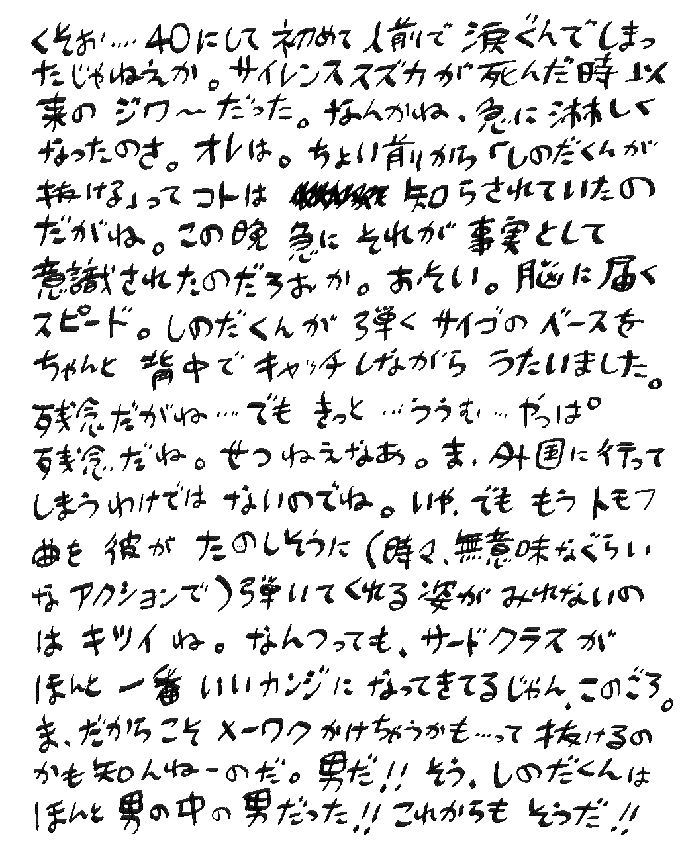 くそぉ…40にして初めて人前で涙ぐんでしまっ
たじゃねえか。サイレンススズカが死んだ時以
来のジワ〜だった。なんかね、急に淋しく
なったのさ。オレは。ちょい前から「しのだくんが
抜ける」ってコトは 知らされていたの
だがね。この晩急にそれが事実として
意識されたのだろおか。おそい。脳に届く
スピード。しのだくんが弾くサイゴのベースを
ちゃんと背中でキャッチしながらうたいました。
残念だがね…でもきっと…ううむ…やっぱ
残念だね。せつねえなあ。ま、外国に行って
しまうわけではないのでね。いや、でももうトモフ
曲を彼がたのしそうに(時々、無意味なぐらい
なアクションで)弾いてくれる姿がみれないの
はキツイね。なんつっても、サードクラスが
ほんと一番いいカンジになってきてるじゃん、このごろ。
ま、だからこそメーワクかけちゃうかも…って抜けるの
かも知んねーのだ。男だ!!そう、しのだくんは
ほんと男の中の男だった!!これからもそうだ!!